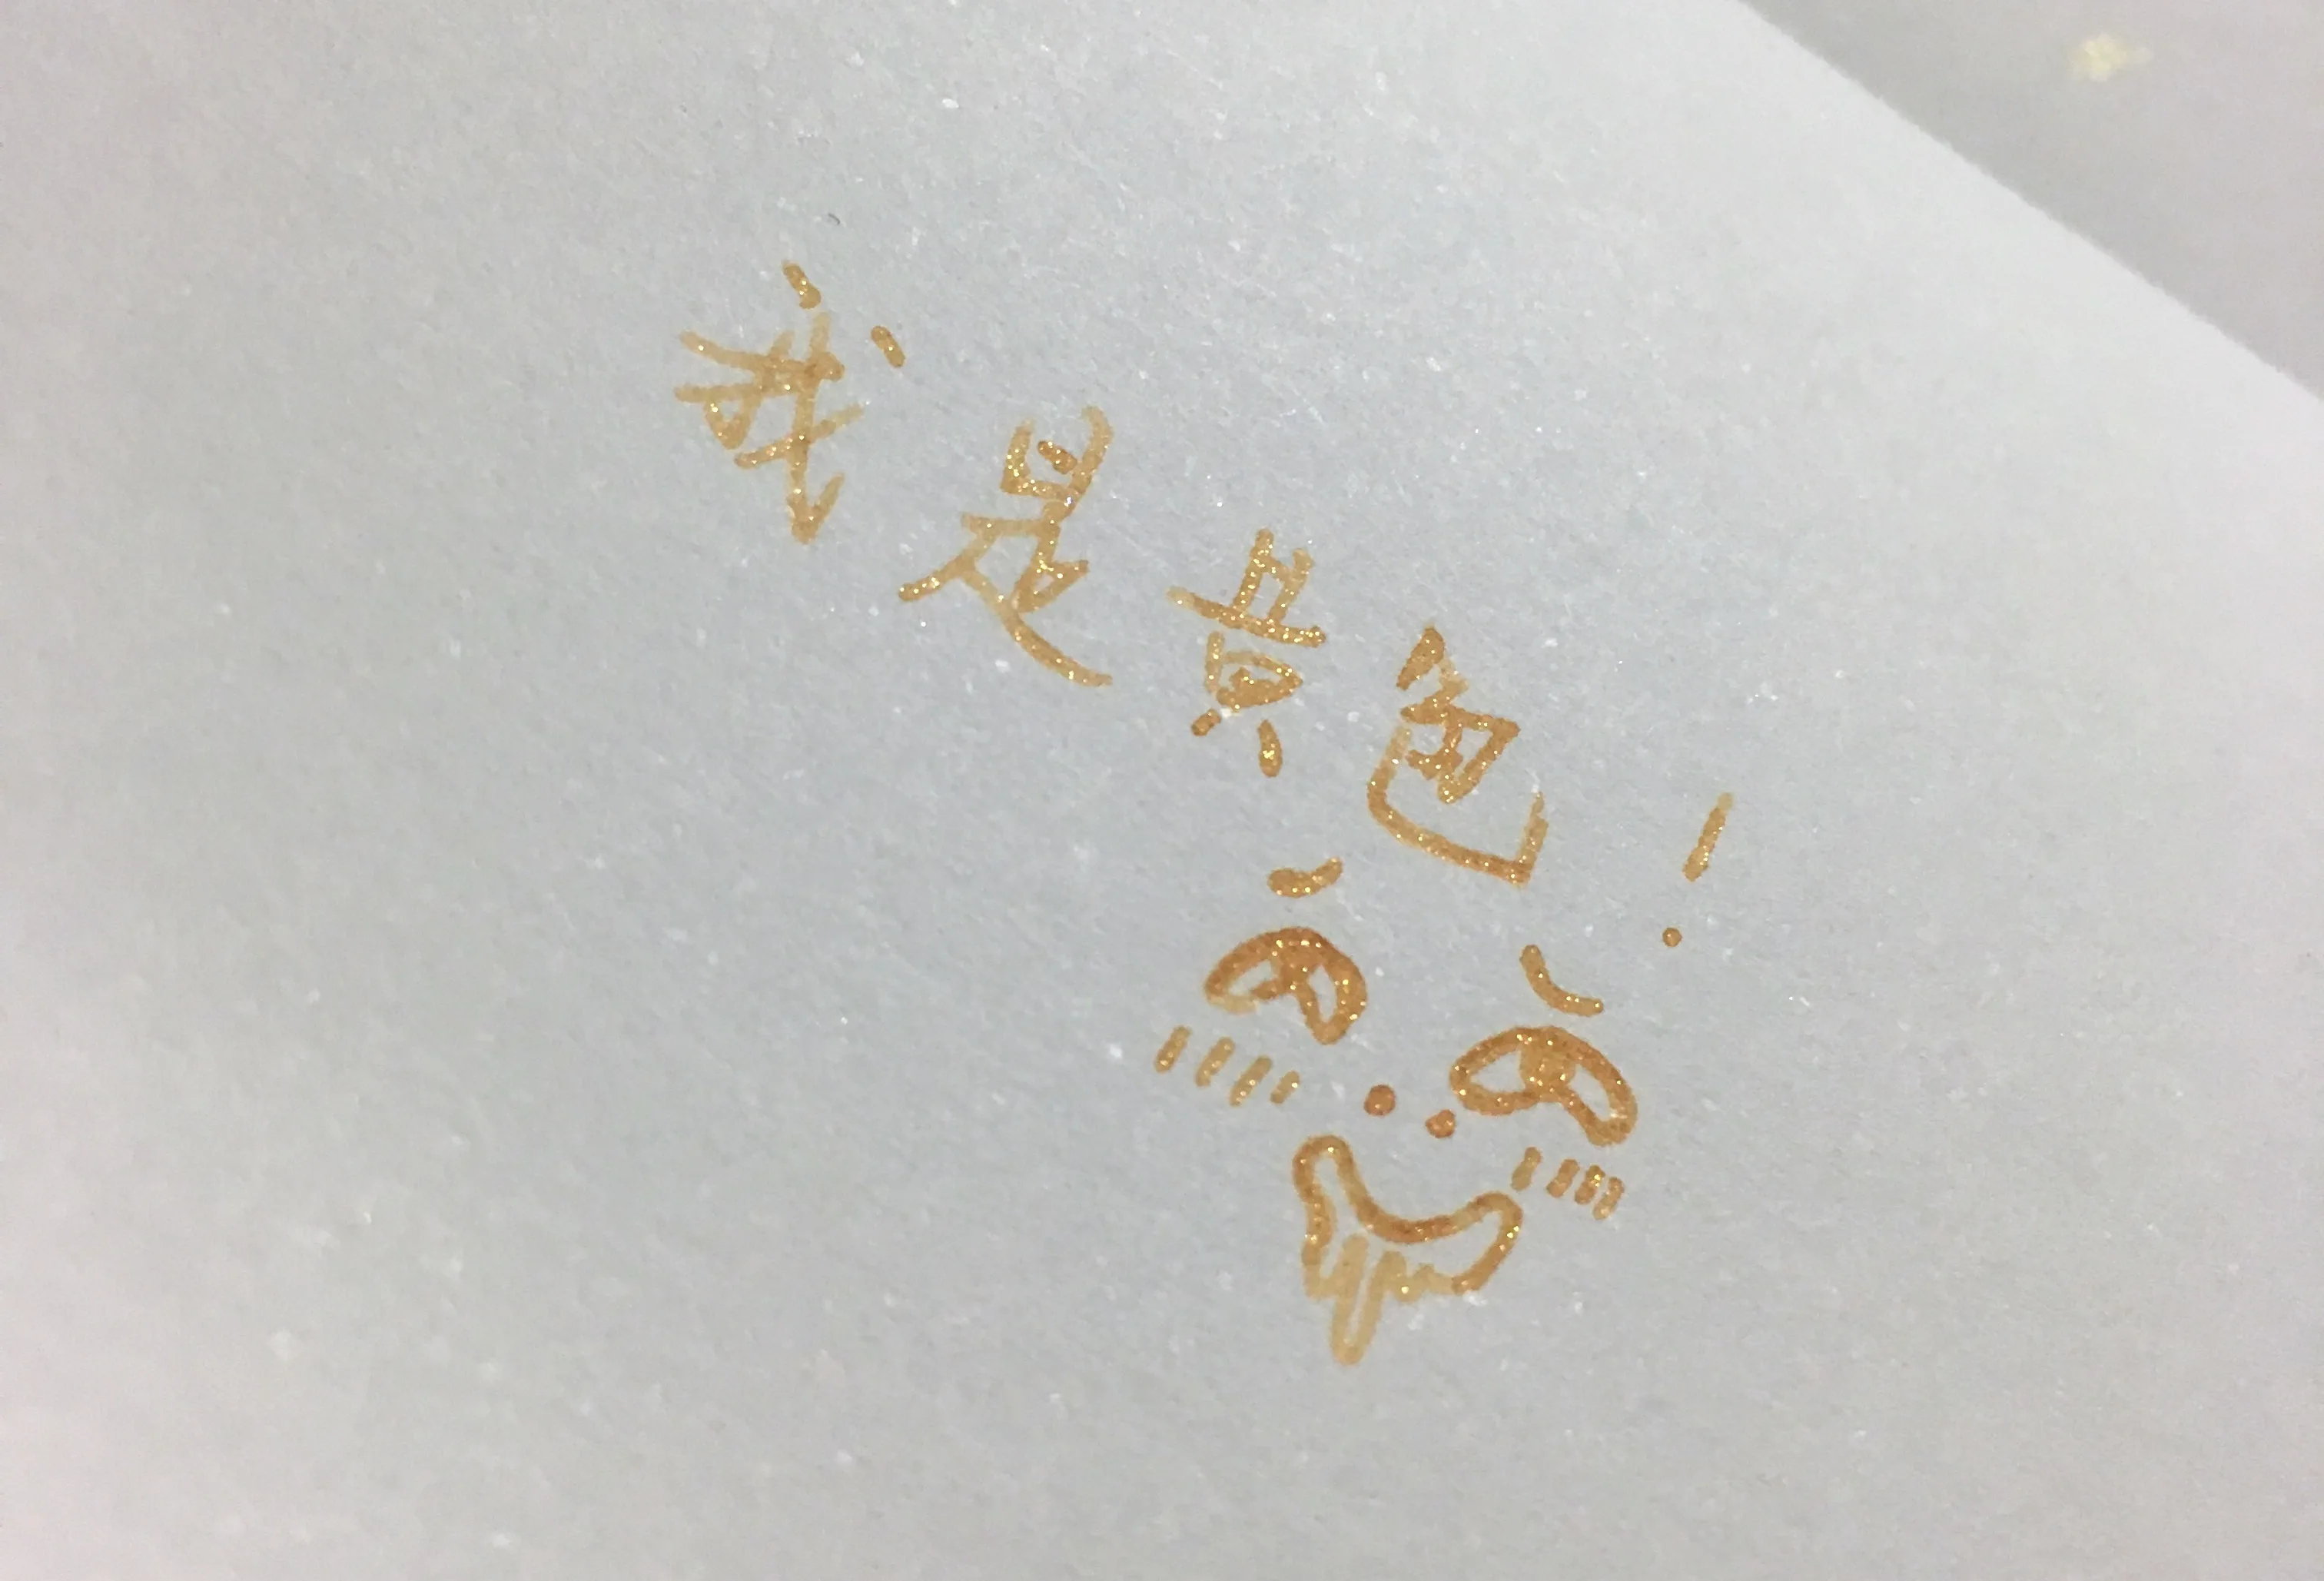 我是黄色!